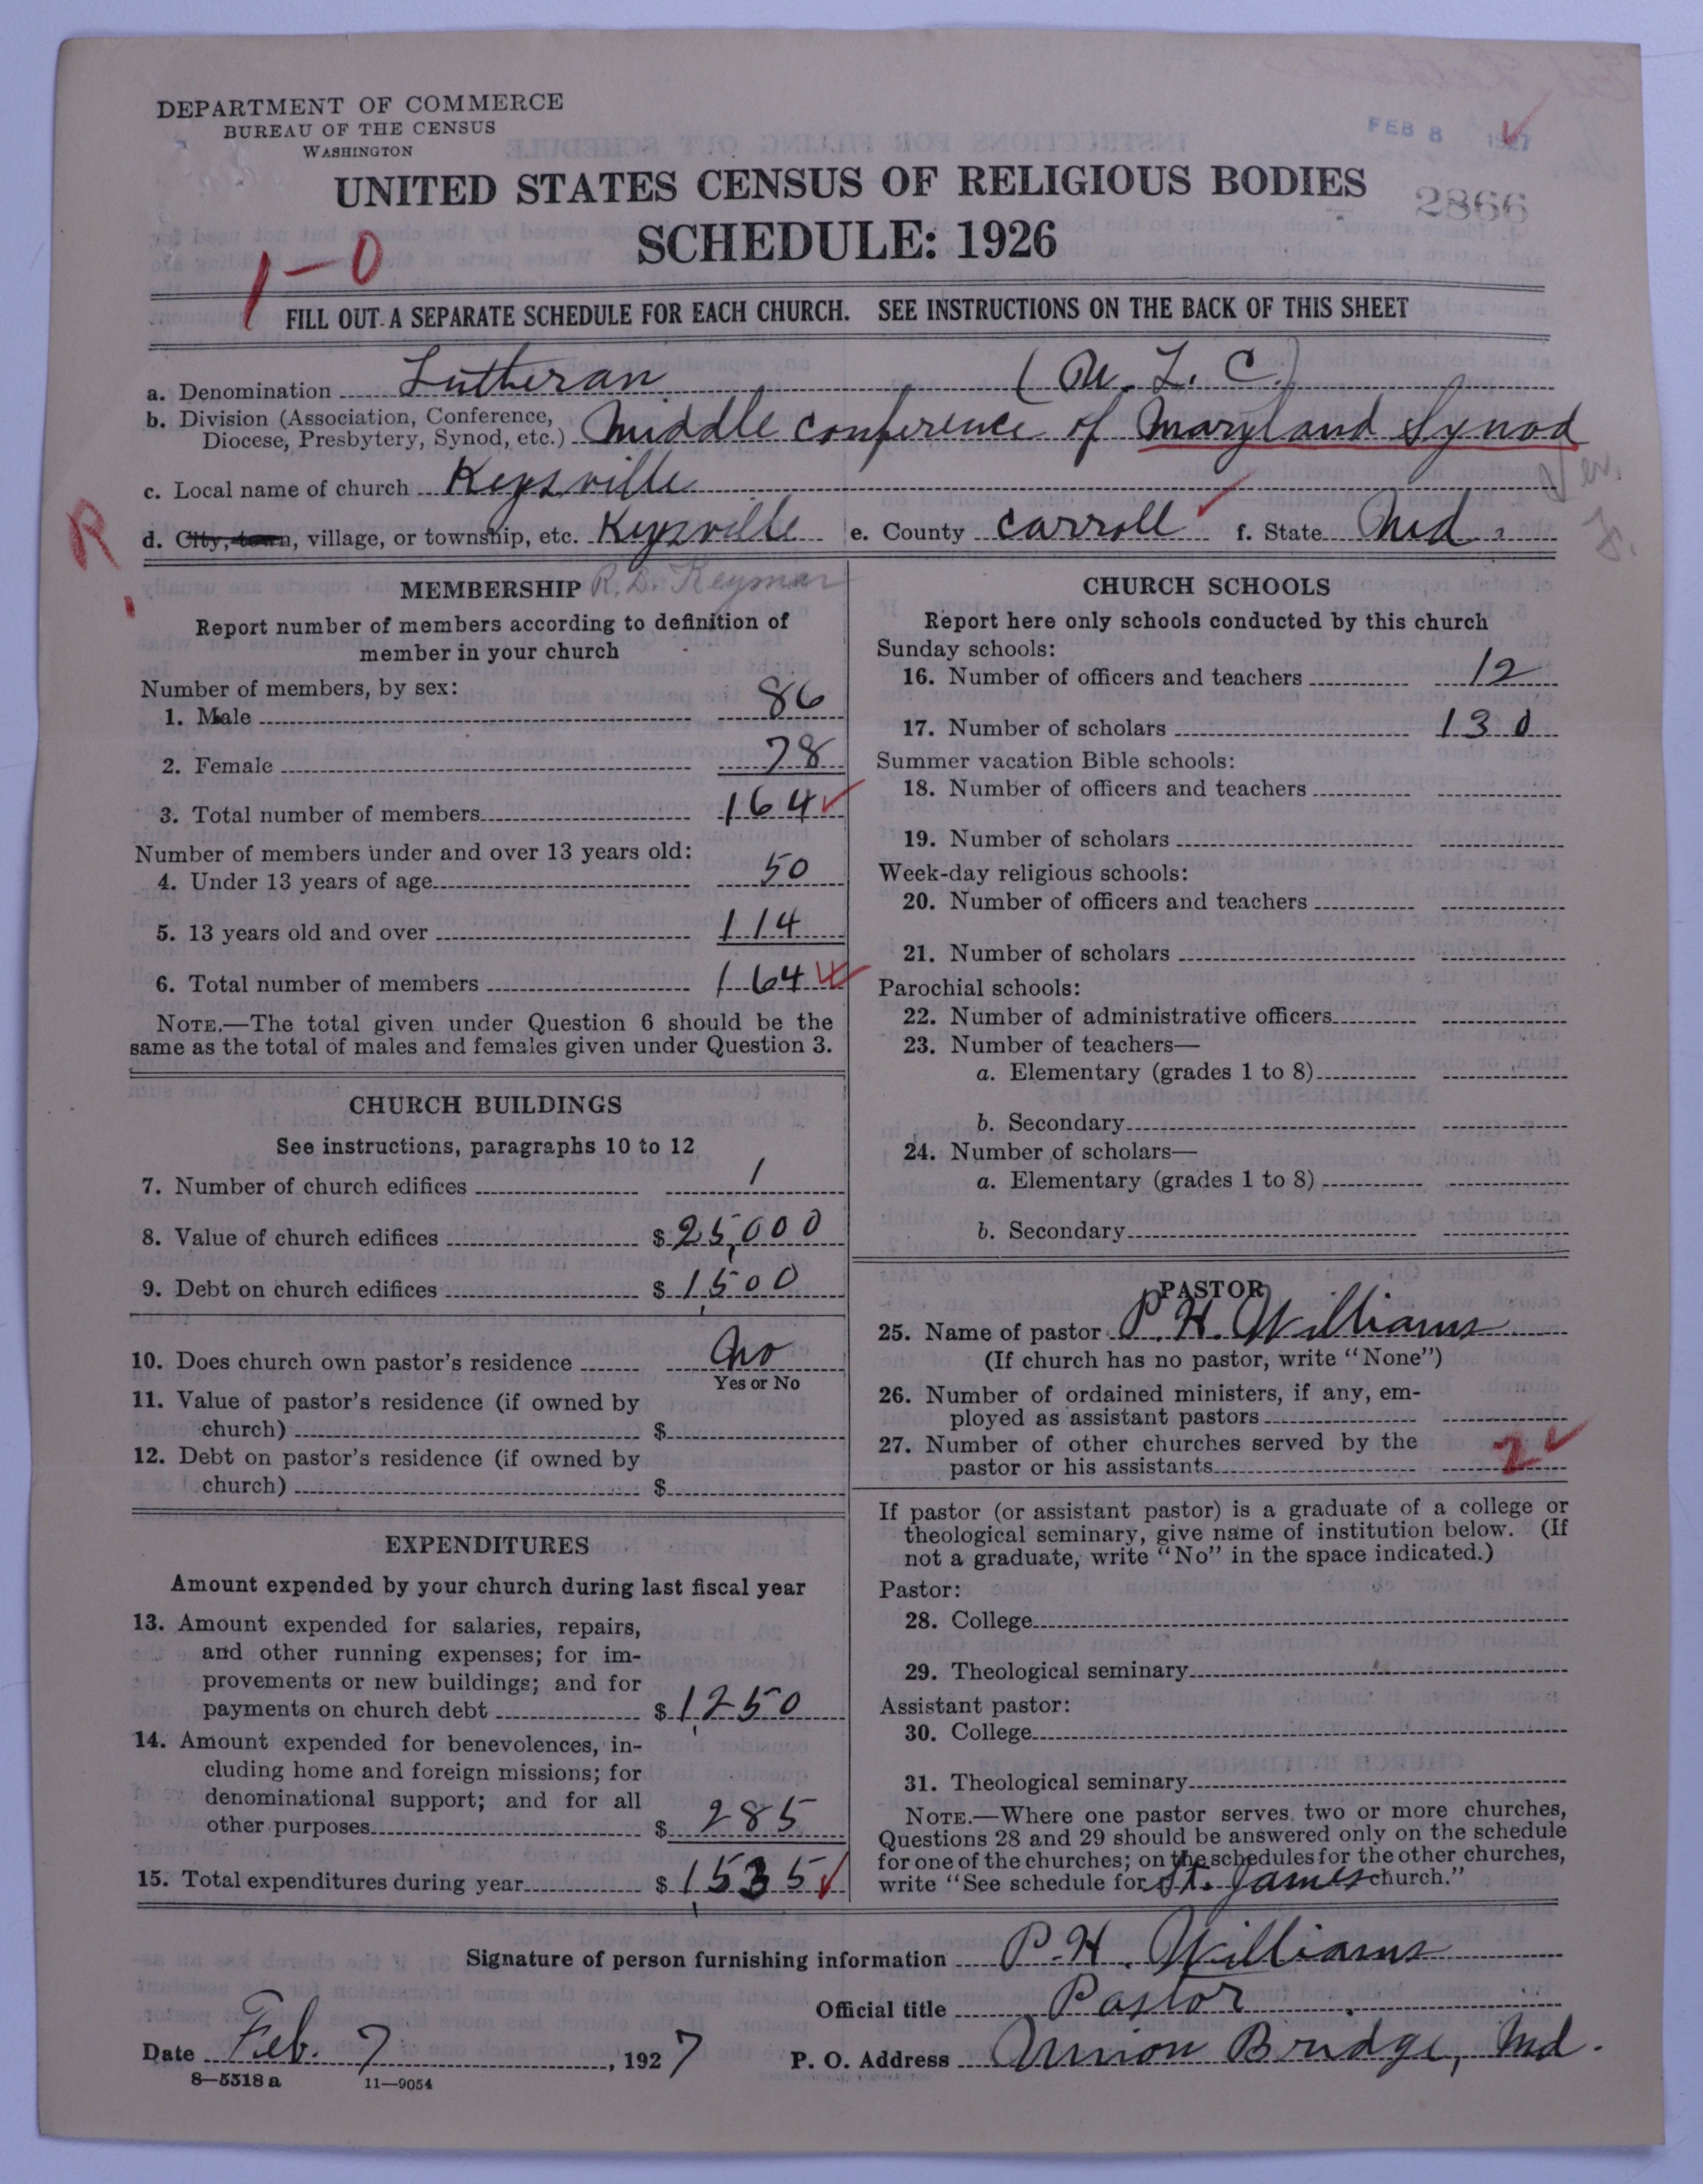 DEPARTMENT OF COMMERCE
BUREAU OF THE CENSUS
WASHINGTON
FEB 8 1927
UNITED STATES CENSUS OF RELIGIOUS BODIES
2866
SCHEDULE: 1926
1-0
FILL OUT A SEPARATE SCHEDULE FOR EACH CHURCH. SEE INSTRUCTIONS ON THE BACK OF THIS SHEET
a. Denomination Lutheran (U. L. C.)
b. Division (Association, Conference,
Diocese, Presbytery, Synod, etc.) Middle Conference of Maryland Synod
c. Local name of church Keysville
R
d. City, town, village, or township, etc. Keysville e. County Carroll f. State Md.
MEMBERSHIP R. D. Keymar
Report number of members according to definition of
member in your church
Number of members, by sex:
1. Male 86
2. Female 78
3. Total number of members 164
Number of members under and over 13 years old:
4. Under 13 years of age 50
5. 13 years old and over 114
6. Total number of members 164
NOTE.—The total given under Question 6 should be the
same as the total of males and females given under Question 3.
CHURCH BUILDINGS
See instructions, paragraphs 10 to 12
7. Number of church edifices 1
8. Value of church edifices $ 25,000
9. Debt on church edifices $ 1,500
10. Does church own pastor's residence No
Yes or No
11. Value of pastor's residence (if owned by
church) $
12. Debt on pastor's residence (if owned by
church) $
EXPENDITURES
Amount expended by your church during last fiscal year
13. Amount expended for salaries, repairs,
and other running expenses; for im-
provements or new buildings; and for
payments on church debt $ 1,250
14. Amount expended for benevolences, in-
cluding home and foreign missions; for
denominational support; and for all
other purposes $ 285
15. Total expenditures during year $ 1,535
CHURCH SCHOOLS
Report here only schools conducted by this church
Sunday schools:
16. Number of officers and teachers 12
17. Number of scholars 130
Summer vacation Bible schools:
18. Number of officers and teachers
19. Number of scholars
Week-day religious schools:
20. Number of officers and teachers
21. Number of scholars
Parochial schools:
22. Number of administrative officers
23. Number of teachers—
a. Elementary (grades 1 to 8)
b. Secondary
24. Number of scholars—
a. Elementary (grades 1 to 8)
b. Secondary
PASTOR
25. Name of pastor P. H. Williams
(If church has no pastor, write "None")
26. Number of ordained ministers, if any, em-
ployed as assistant pastors
27. Number of other churches served by the
pastor or his assistants 2
If pastor (or assistant pastor) is a graduate of a college or
theological seminary, give name of institution below. (If
not a graduate, write "No" in the space indicated.)
Pastor:
28. College
29. Theological seminary
Assistant pastor:
30. College
31. Theological seminary
NOTE.—Where one pastor serves two or more churches,
Questions 28 and 29 should be answered only on the schedule
for one of the churches; on the schedules for the other churches,
write "See schedule for St. James church."
Signature of person furnishing information P. H. Williams
Official title Pastor
Date Feb. 7, 1927 P. O. Address Union Bridge, Md.
8—5518 a 11—9054